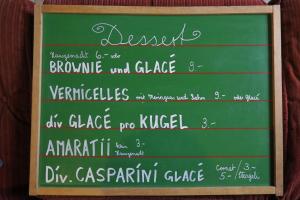 Dessert
Hausgemacht 6.- oder
BROWNIE und GLACÉ 8.-
VERMICELLES mit Meringues und Rahm 9.- oder Glacé
div GLACÉ pro KUGEL 3.-
AMARATII 3.-
Hausgemacht
Div. CASPARINI GLACÉ Cornet / 3.-
5.- /